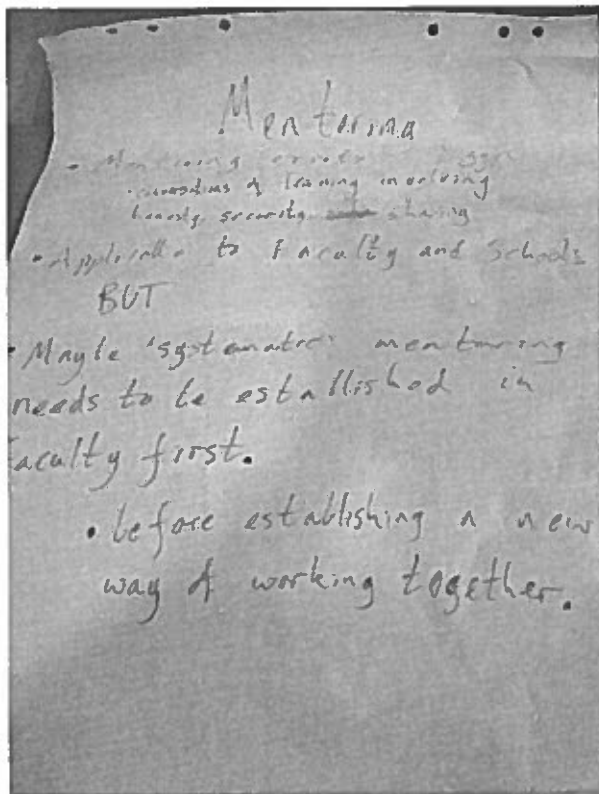 Mentoring
• Mentoring
• of learning involving
honesty, security sharing
• Applicable to Faculty and Schools
BUT
• Maybe 'systematic' mentoring
needs to be established in
faculty first.
• before establishing a new
way of working together.